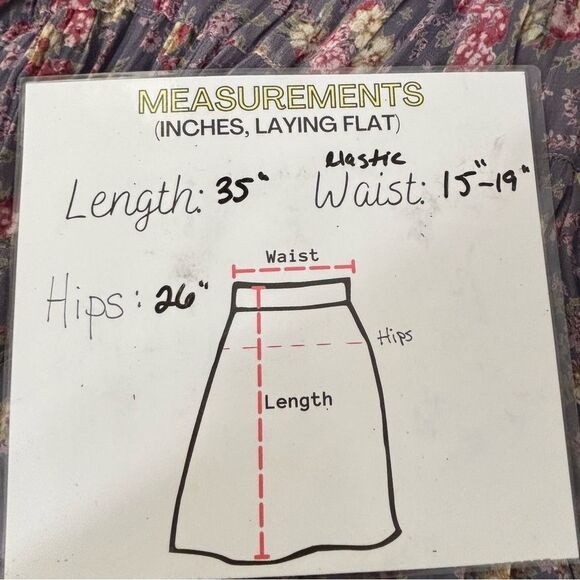 MEASUREMENTS
(INCHES, LAYING FLAT)
Elastic
Length: 35" Waist: 15"-19"
Hips: 26"
Waist
Hips
Length